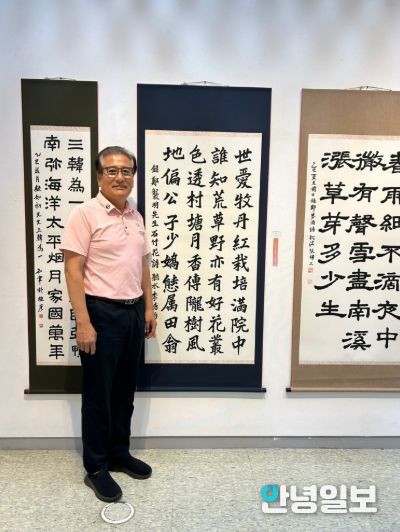 春雨細不滴夜中
微有聲雪盡南溪
漲草芽多少生
世愛牧丹紅栽培滿院中
誰知荒草野亦有好花叢
色透村塘月香傳隴樹風
地偏公子少嬌態属田翁
三韓為一
鴨
南弥海洋太平烟月家國萬年
안녕일보